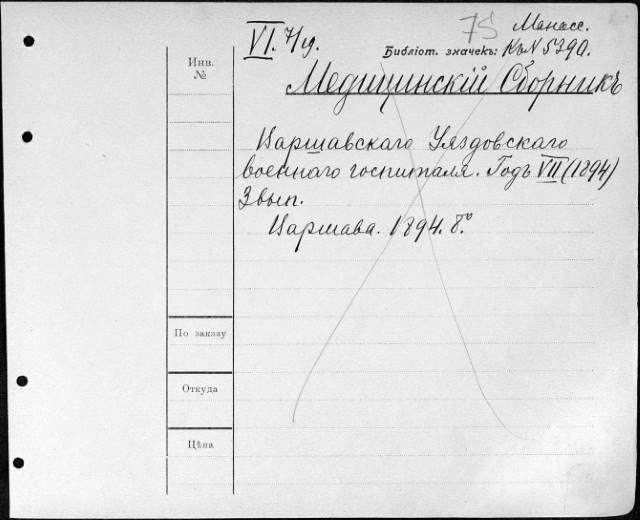 75 Манасс.
VI. 7/19. Библіот. значекъ: Къ N 5790.
Инв.
№
Медицинскій Сборникъ
Варшавскаго Уяздовскаго
военнаго госпиталя. Годъ VII (1894)
3 вып.
Варшава. 1894. 8.º
По заказу
Откуда
Цѣна